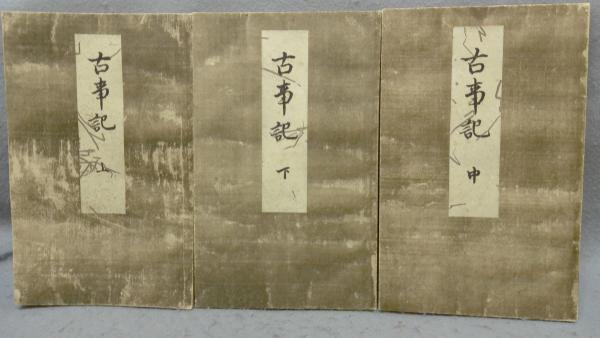 古事記 上
古事記 下
古事記 中